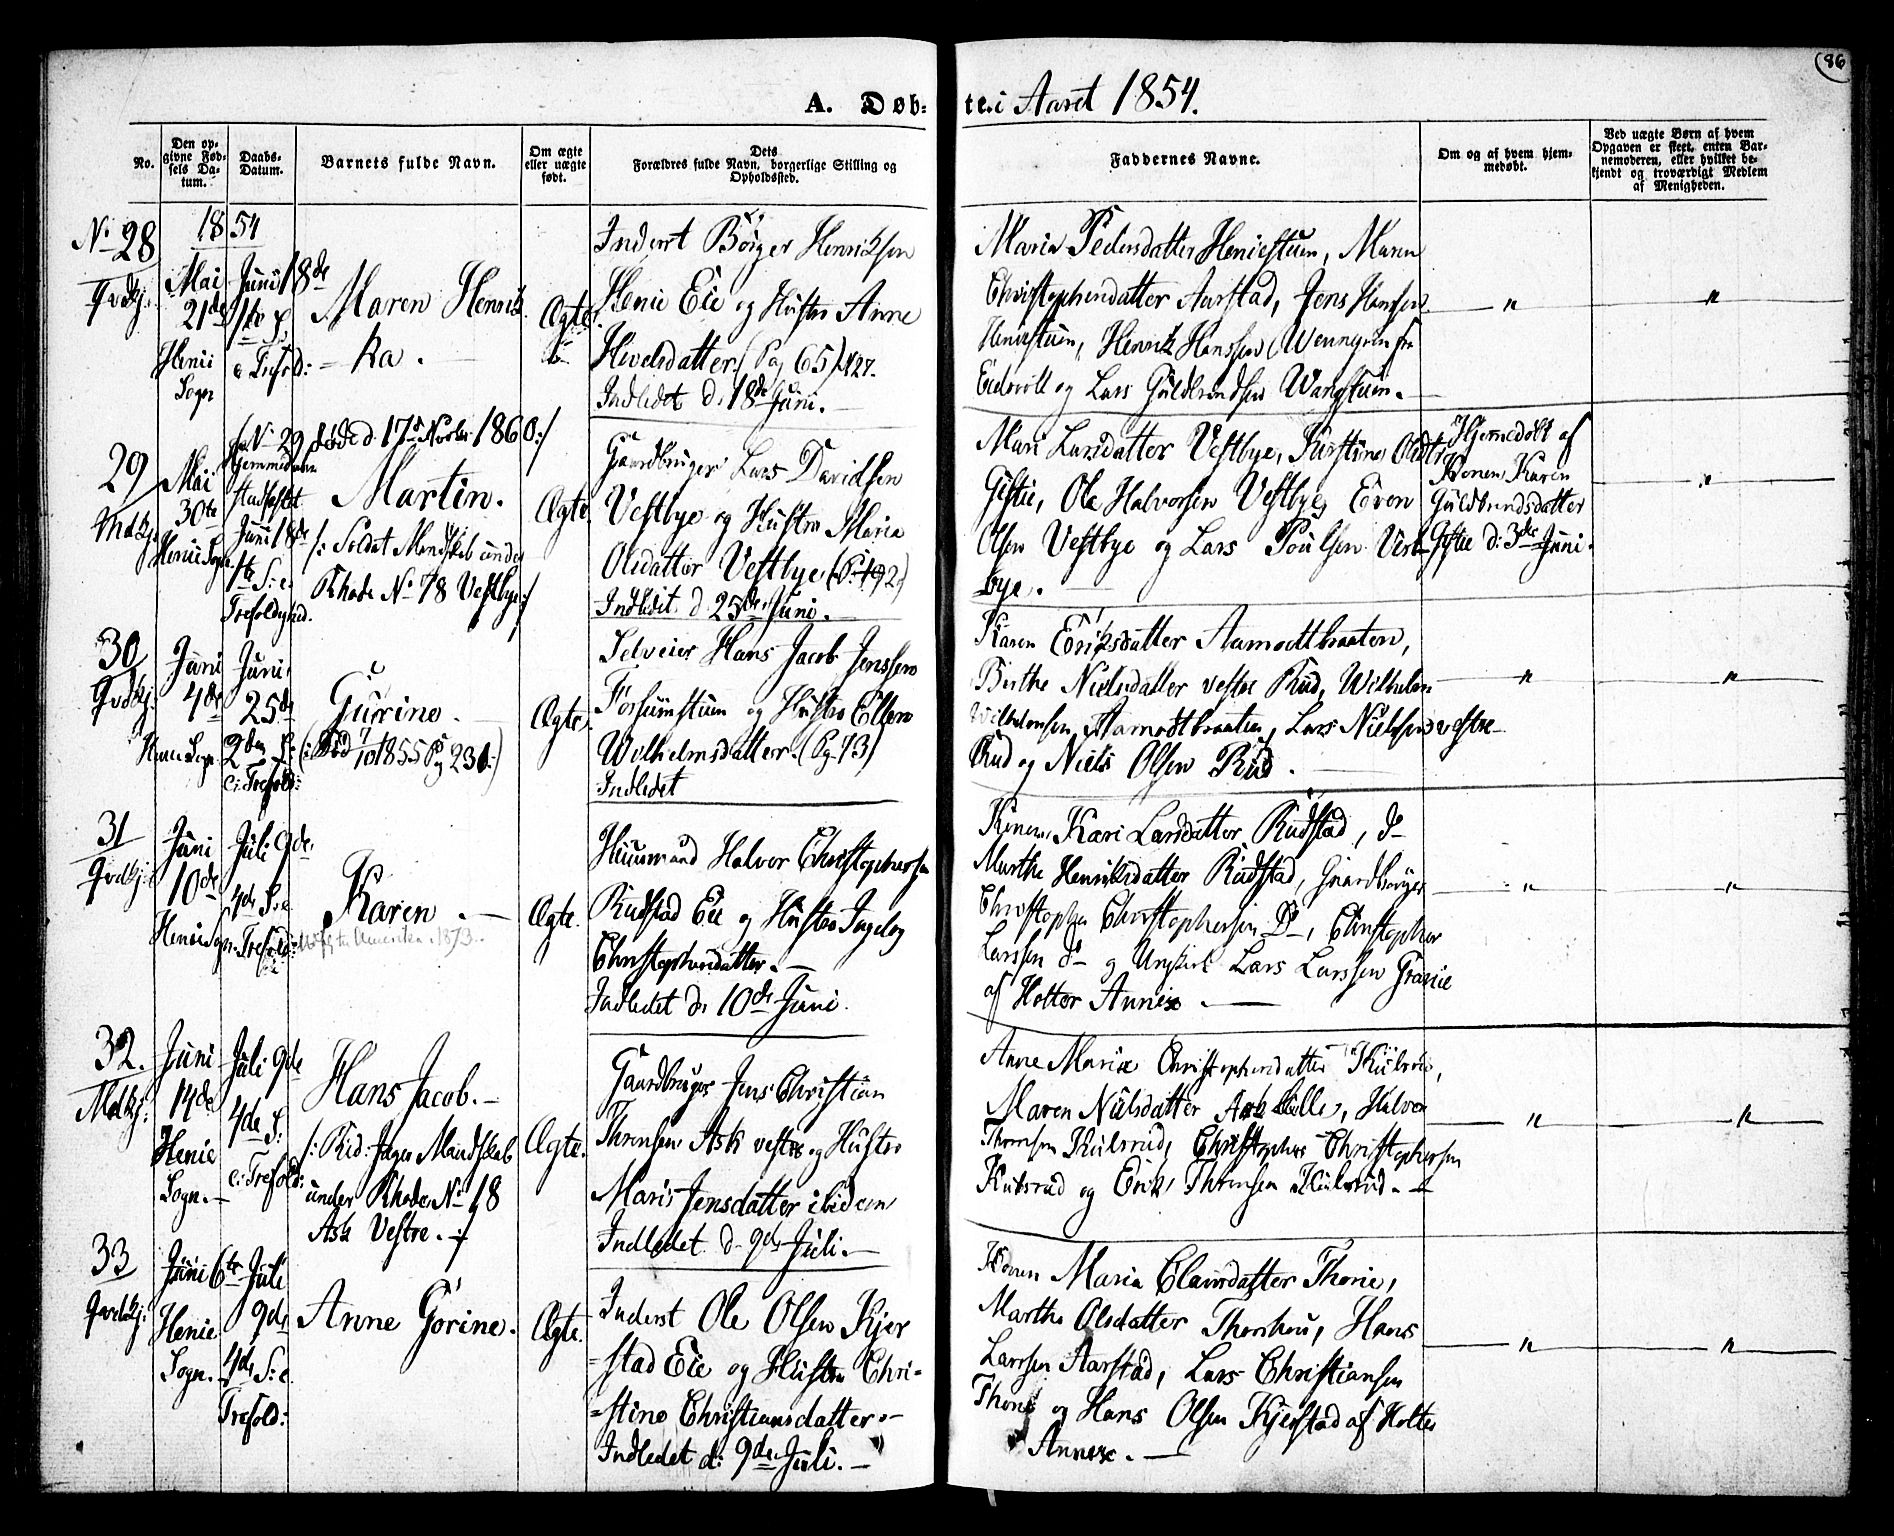 86
A. Døb- te i Aaret 1854.
No.
Den op-
givne Fød-
sels Da-
tum.
Daabs-
Datum.
Barnets fulde Navn.
Om ægte
eller uægte
født.
Dets
Forældres fulde Navn, borgerlige Stilling og
Opholdssted.
Faddernes Navne.
Om og af hvem hjem-
medøbt.
Ved uægte Børn af hvem
Opgaven er skeet, enten Bar-
nemoderen, eller hvilket be-
kjendt og troværdigt Medlem
af Menigheden.
No 28
Qvdkj.
1854
Mai
21de
Henie
Sogn
Juni 18de
1ste S.
e Trefold:
Maren Henrik-
=ka.
Ægte
Inderst Börger Henriksen
Henie Eie og Hustro Anne
Hivelsdatter (Pag 65) 427.
Indledet d. 18de Juni.
Maria Pedersdatter Heniestuen, Maren
Christophersdatter Aarstad, Jens Hansen
Heniestuen, Henrik Hanssen Wenngren fra
Eidsvoll og Lars Guldbrandsen Wangstuen.
"
"
29
Mdkj.
Mai
30te
Henie Sogn
Hjemmedøbt
Stadfæstet
Juni 18de
1ste S: e.
Trefoldighed.
No 29 døde d. 17de Novbr 1860:/
Martin.
/: Soldat Mandskab under
Rhode No 78 Vestbye:/
Ægte.
Gaardbruger Lars Davidsen
Vestbye og Hustro Maria
Olsdatter Vestbye (P: 192)
Indledet d 25de Juni.
Mari Larsdatter Vestbye, Kirstine Olsdtr
Gistie, Ole Halvorsen Vestbye, Even
Olsen Vestbye og Lars Poulsen Vest-
bye.
Hjemmedøbt af
Konen Karen
Guldbrandsdatter
Gistie d: 3die Juni.
"
30
Qvdkj.
Juni
4de
Henie Sogn
Juni
25de
2den S:
e: Trefold:
Gurine.
(: Död 7/10 1855 Pag 230:)
Ægte.
Selveier Hans Jacob Jenssen
Forsünstuen og Hustro Ellen
Wilhelmsdatter. (Pg. 73)
Indledet
Karen Eriksdatter Aamodtbraaten,
Birthe Nielsdatter vestre Rud, Wilhelm
Wilhelmsen Aamodtbraaten, Lars Nielsen vestre
Rud og Niels Olsen Rud.
"
"
31
Qvdkj.
Juni
10de
Henie Sogn.
Juli 9de
4de S: e
Trefold:
Karen.
til Amerika 1873.
Ægte.
Huusmand Halvor Christophersen
Rudstad Eie og Hustro Ingeborg
Christophersdatter.
Indledet d. 10de Juni.
Konen Kari Larsdatter Rudstad, do
Marthe Henriksdatter Rudstad, Gaardbruger
Christopher Christophersen Do, Christopher
Larssen do og Ungkarl Lars Larssen Granie
af Holter Annex.
"
"
32.
Mdkj.
Juni
14de
Henie
Sogn.
Juli 9de
4de S:
e: Trefold:
Hans Jacob.
/: Rid: Jæger Mandskab
under Rhode No 18
Ask Vestre. :/
Ægte.
Gaardbruger Jens Christian
Thronsen Ask vestre og Hustro
Mari Jensdatter ibidem
Indledet d. 9de Juli.
Anne Maria Christophersdatter Kulsrud,
Maren Nielsdatter Ask lille, Halvor
Thronsen Kulsrud, Christopher Christophersen
Kulsrud og Erik Thronsen Kulsrud.
"
"
33
Qvdkj.
Juni 6te
Henie
Sogn.
Juli
9de
4de S: e
Trefold:
Anne Gorine.
Ægte.
Inderst Ole Olsen Kjer
=stad Eie og Hustro Chri-
=stine Christiansdatter.
Indledet d: 9de Juli.
Konen Maria Clausdatter Thorie,
Marthe Olsdatter Thorshou, Hans
Larssen Aarstad, Lars Christiansen
Thorie og Hans Olsen Kjerstad af Holter
Annex.
"
"